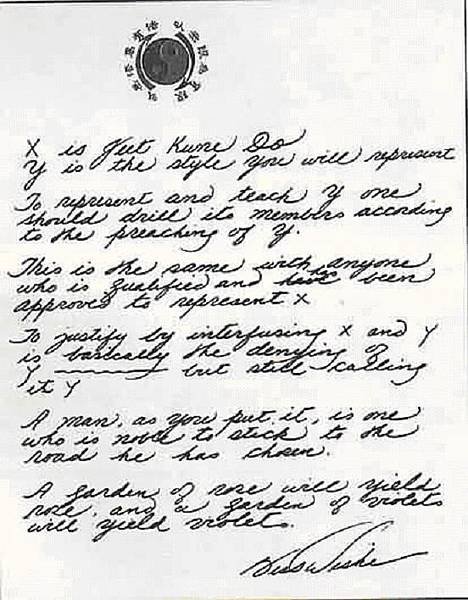 X is Jeet Kune Do
Y is the style you will represent
To represent and teach Y one
should drill its members according
to the preaching of Y.
This is the same with anyone
who is qualified and has been
approved to represent X
To justify by interfusing X and Y
is basically the denying of
Y ——— but still calling
it Y
A man, as you put it, is one
who is noble to stick to the
road he has chosen.
A garden of rose will yield
rose, and a garden of violets
will yield violets.